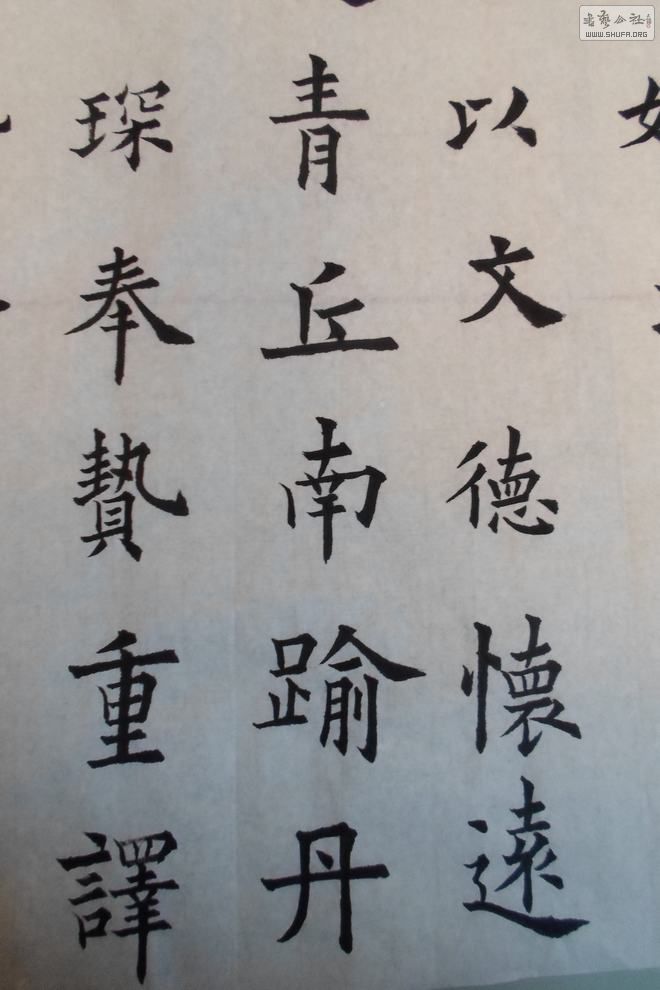 以文德懷遠
青丘南踰丹
琛奉贄重譯
書藝公社
WWW.SHUFA.ORG